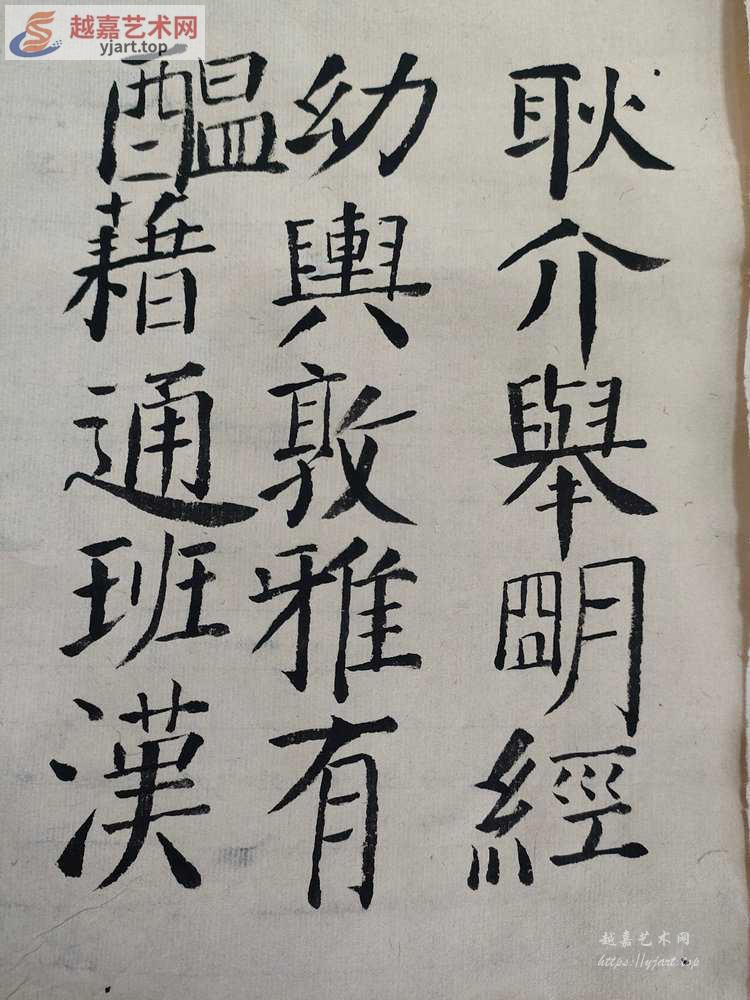 越嘉艺术网
yjart.top
耿介舉朙經
幼輿敦雅有
醖藉通班漢
越嘉艺术网
https://yjart.top